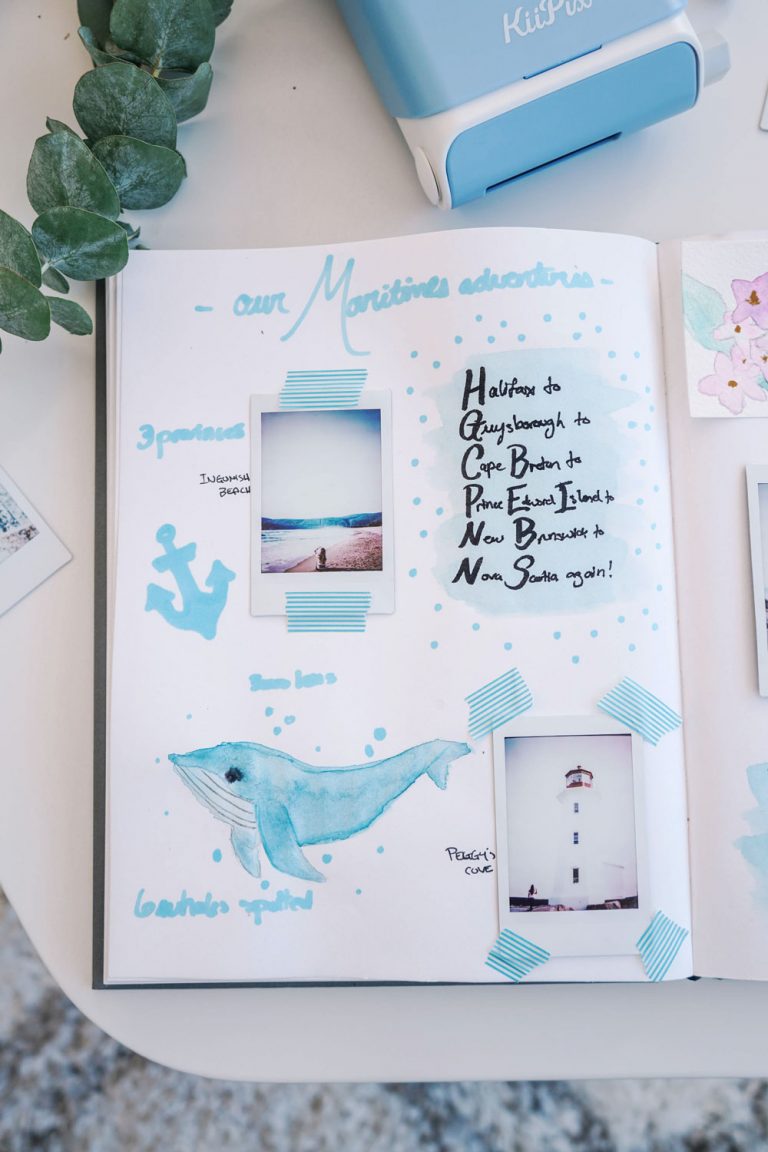 KiiPix
- our Maritimes adventures -
3 provinces
INGONISH
BEACH
Halifax to
Guysborough to
Cape Breton to
Prince Edward Island to
New Brunswick to
Nova Scotia again!
PEGGY'S
COVE
6 whales spotted